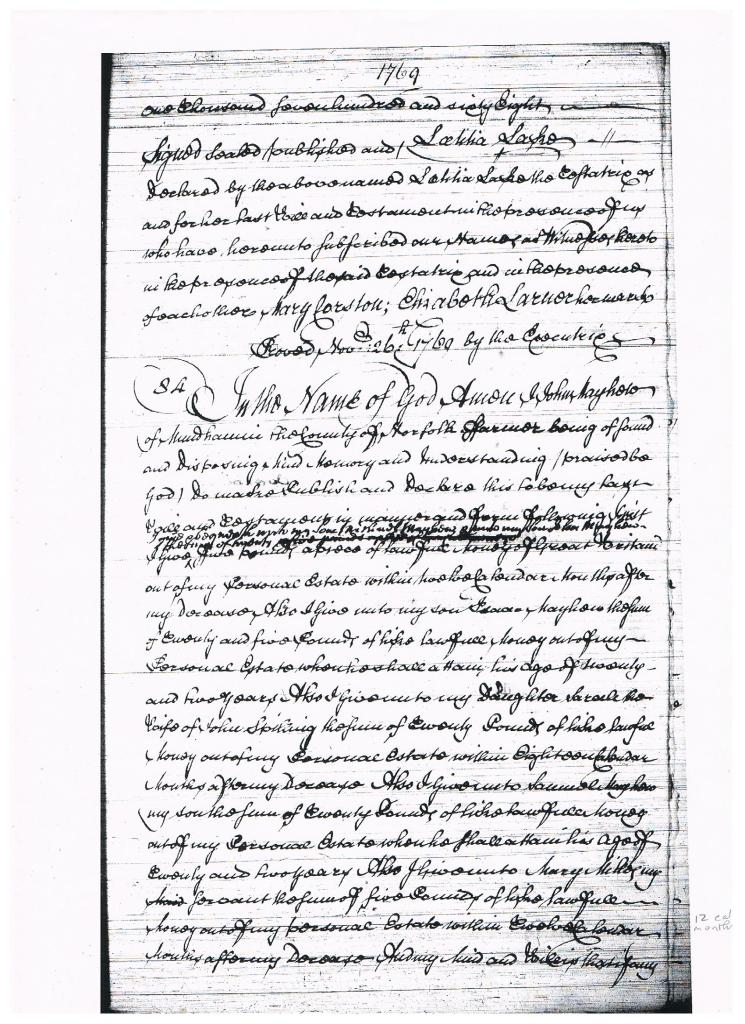 1769
one Thousand seven hundred and sixty Eight
Signed Sealed published and Lætitia Lake
Declared by the above named Lætitia Lake the Testatrix as
and for her Last Will and Testament in the presence of us
who have hereunto subscribed our Names as Witnesses hereto
in the presence of the said Testatrix and in the presence
of each other Mary Corston; Elizabeth Larner her mark
Proved Novr 26th 1769 by the Executrix
84 In the Name of God Amen I John Mayhew
of Mundham in the County of Norfolk ffarmer being of sound
and Disposing Mind Memory and Understanding (praised be
God) Do make Publish and Declare this to be my Last
Will and Testament in manner and form following First
I give and bequeath unto my
I Give five pounds a piece of lawfull Money of Great Britain
out of my Personal Estate within twelve Calendar Months after
my Decease Also I Give unto my son Isaac Mayhew the sum
of Twenty and five Pounds of like lawfull Money out of my
Personal Estate when he shall attain his age of twenty
and two years Also I Give unto my Daughter Sarah the
Wife of John Spilling the sum of Twenty Pounds of like lawful
Money out of my Personal Estate within Eighteen Calendar
Months after my Decease Also I Give unto Samuel Mayhew
my son the sum of Twenty Pounds of like lawfull Money
out of my Personal Estate when he shall attain his age of
Twenty and two years Also I Give unto Mary my
Maid Servant the sum of five Pounds of like lawfull
Money out of my personal Estate within Twelve Calendar
Months after my Decease And my Mind and Will is that if any
12 cal
month